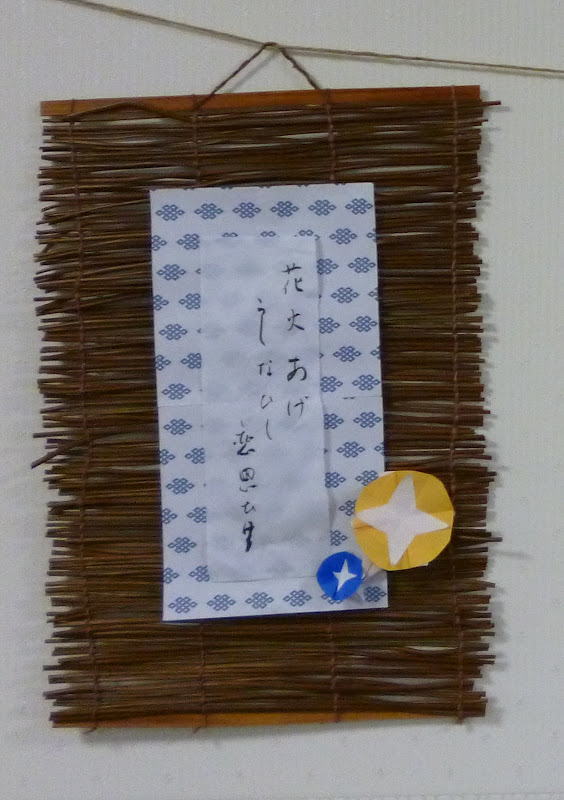 花火あげ
うしなひし
恋思ひ出